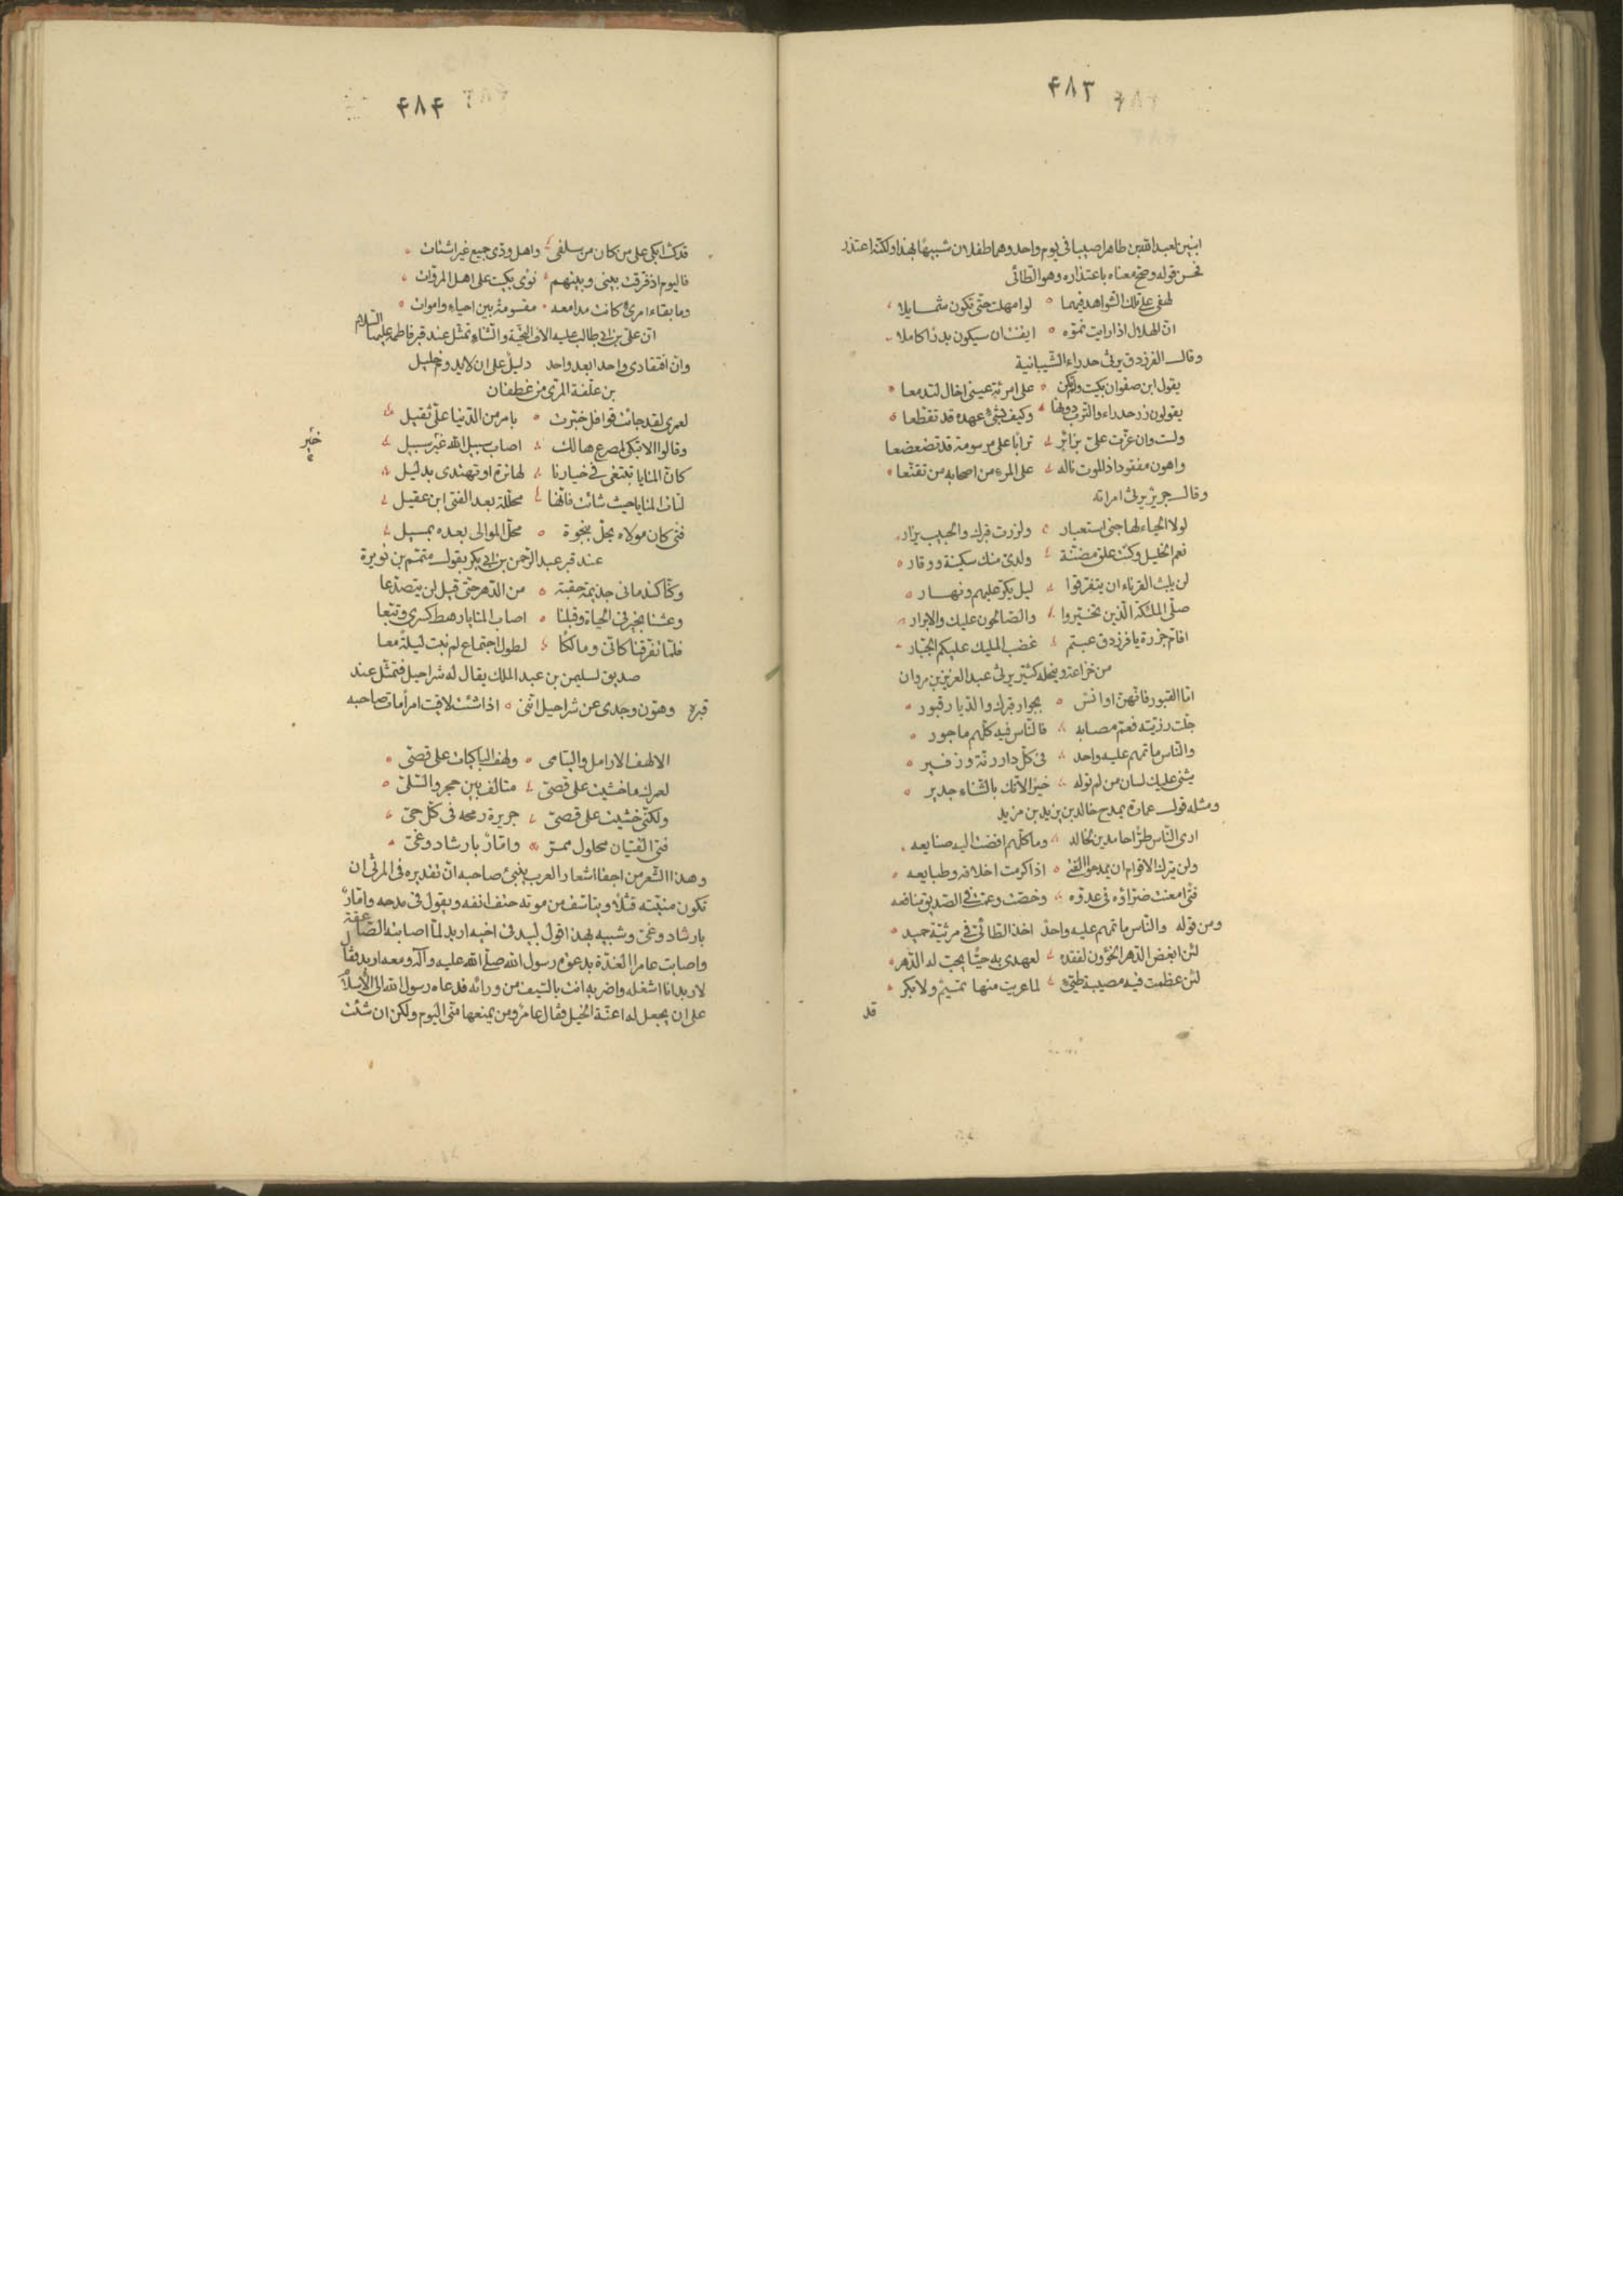 ۴۸۳
ابنين لعبد الله بن طاهر اصيبا في يوم واحد وهما طفلان شبيها بهذا ولكنه اعتذر
فحسن قوله وضح معناه باعتذاره وهو الطائى
لهفى على تلك الشواهد فيهما لو امهلت حتى تكون شمايلا
ان الهلال اذا رايت نموّه ايقنت ان سيكون بدرا كاملا
وقال الفرزدق يرثى حدراء الشيبانية
يقول ابن صفوان بكيت ولم تكن على امرئة عينى اخال لتدمعا
يقولون زر حدراء والترب دونها وكيف بشىء عهده قد تقطعا
ولست وان عزّت علىّ بزائر ترابا على مرسومة قد تضعضعا
واهون مفقود اذا الموت ناله على المرء من اصحابه من تقنّعا
وقال جرير يرثى امراته
لولا الحياء لهاجنى استعبار ولزرت قبرك والحبيب يزار
نعم الخليل وكنت علق مضنّة ولدىّ منك سكينة ووقار
لن يلبث القرناء ان يتفرقوا ليل يكرّ عليهم ونهار
صلّى الملئكة الّذين تخيّروا والصالحون عليك والابرار
افامّ حزرة يا فرزدق عبتم غضب المليك عليكم الجبّار
من خزاعة وينحله كثيّر يرثى عبد العزيز بن مروان
امّا القبور فانّهنّ اوانس بجوار قبرك والديار قبور
جلّت رزيّته فعمّ مصابه فالنّاس فيه كلّهم ماجور
والنّاس ماتمهم عليه واحد فى كلّ دار رنّة وزفير
يثنى عليك لسان من لم توله خيرا لانّك بالثناء جدير
ومثله قول عمارة يمدح خالد بن يزيد بن مزيد
ارى النّاس طرّا حامدين لخالد وما كلّهم افضت اليه صنايعه
ولن يترك الاقوام ان يمدحوا الفتى اذا كرمت اخلاقه وطبايعه
فتى امعنت ضرّاؤه فى عدوّه وخصّت وعمّت فى الصديق منافعه
ومن قوله والنّاس ماتمهم عليه واحد اخذ الطائى فى مرثيّة حميد
لئن ابغض الدهر الخؤون لفقده لعهدى به حيّا يحبّ له الدهر
لئن عظمت فيه مصيبة طيّىء لما عريت منها تميم ولا بكر
قد
۴۸۴
قد كنت ابكى على من كان من سلفى واهل ودّى جميع غير اشتات
فاليوم اذ فرقت بينى وبينهم نوى بكيت على اهل المروّات
وما بقاء امرئ كانت مدامعه مقسومة بين احياء واموات
انّ علىّ بن ابى طالب عليه الاف التحيّة والثناء تمثّل عند قبر فاطمة عليها السّلام
وانّ افتقادى واحدا بعد واحد دليل على ان لا يدوم خليل
بن علّفة المرّى من غطفان
لعمرى لقد جائت قوافل خبّرت بامر من الدّنيا علىّ ثقيل
وقالوا الا تبكى لمصرع هالك اصاب سبيل الله خير سبيل
خير
كانّ المنايا تبتغى فى خيارنا لها نرة او تهتدى بدليل
لتات المنايا حيث شائت فانّها محلّلة بعد الفتى ابن عقيل
فتى كان مولاه يحلّ بنجوة محلّ الموالى بعده بمسيل
عند قبر عبد الرّحمن بن ابى بكر بقول متمّم بن نويرة
وكنّا كندمانى جذيمة حقبة من الدهر حتّى قيل لن يتصدّعا
وعشنا بخير فى الحياة وقبلنا اصاب المنايا رهط كسرى وتبّعا
فلمّا تفرّقنا كانّى ومالكا لطول اجتماع لم نبت ليلة معا
صديق لسليمن بن عبد الملك يقال له شراحيل فتمثّل عند
قبره وهوّن وجدى عن شراحيل انّنى اذا شئت لاقيت امرأ مات صاحبه
الا لهف الارامل واليتامى ولهف الباكيات على قصىّ
لعمرك ما خشيت على قصىّ متالف بين حجر والسّلىّ
ولكنّى خشيت على قصىّ جريرة رمحه فى كلّ حىّ
فتى الفتيان محلول ممرّ وامّار بارشاد وغىّ
وهذا الشّعر من اجفا اشعار العرب ينبئ صاحبه انّ تقديره فى المرثى ان
تكون منيّته قتلا ويتاسّف من موته حتف انفه ويقول فى مدحه وامّار
بارشاد وغىّ وشبيه بهذا قول لبيد فى اخيه اربد لمّا اصابته الصاعقة
واصابت عامرا الغدّة بدعوة رسول الله صلّى الله عليه وآله ومعه اربد فقال
لاربد انا اشغله واضربه انت بالسّيف من ورائه فدعاه رسول الله الى الاسلام
على ان يجعل له اعنّة الخيل فقال عامر ومن يمنعها منّى اليوم ولكن ان شئت